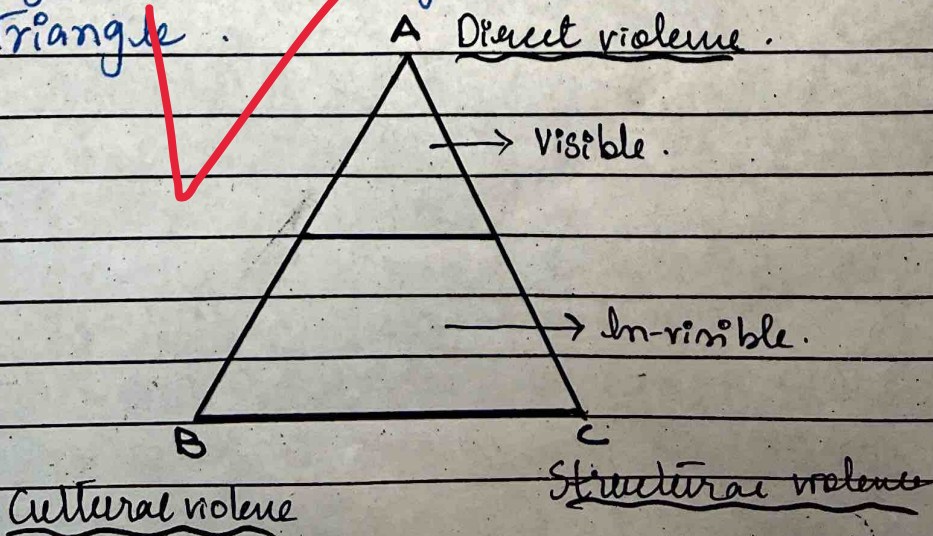 Triangle .
A Direct violence .
→ Visible .
→ In-visible.
B C
Structural violence
Cultural violence